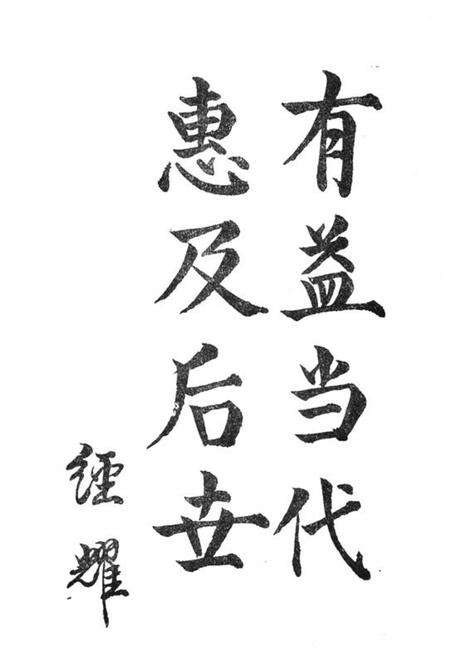 有益当代
惠及后世
经耀